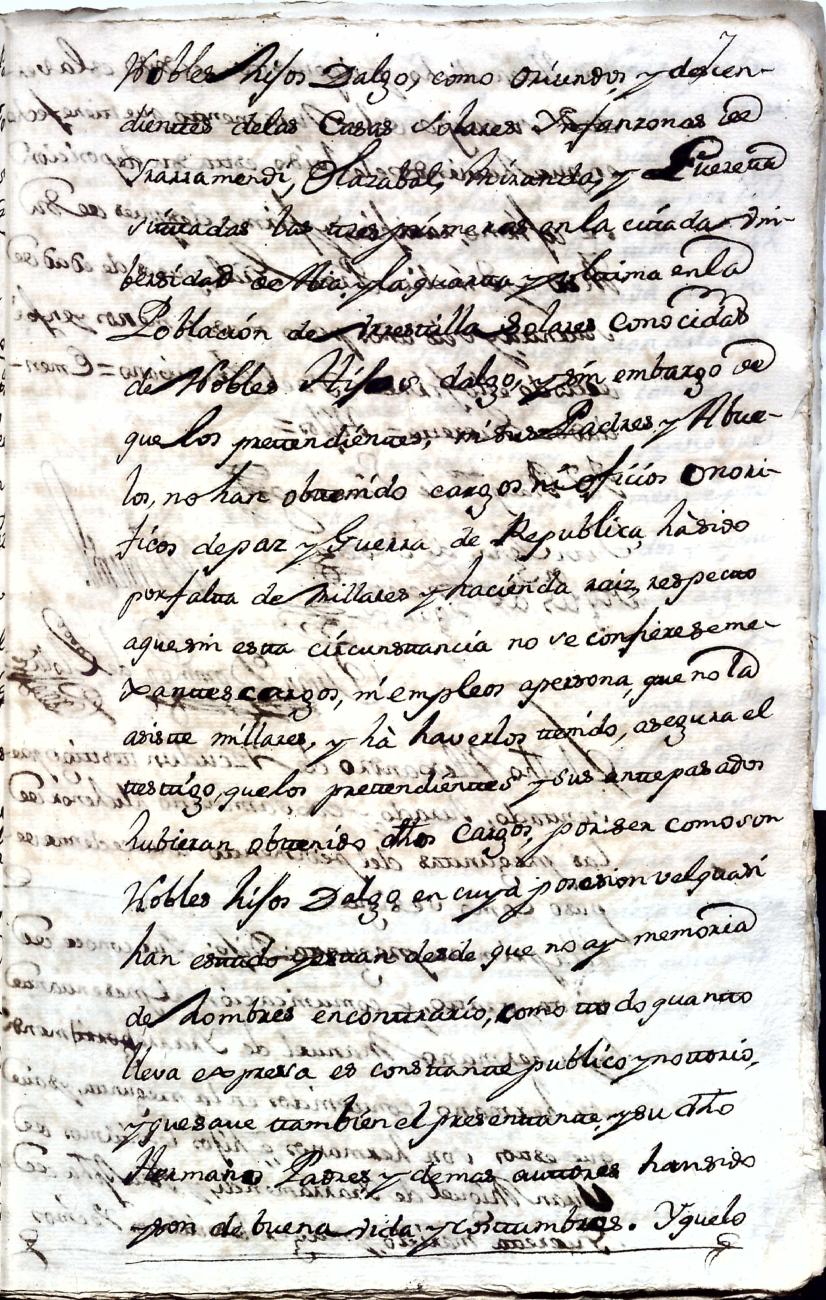 Nobles hijos Dalgo, como oriundos, y descen-
dienttes delas Casas solares Ynfanzonas de
Yrarramendi, Olazabal, Miranda, y Fueretta
sittuadas las ttres primeras en la cittada Vni-
bersidad de Aia, y la quartta y vltima en la
Poblazión de Arrestilla Solares conocidas
de Nobles Hijos dalgo, y sín embargo de
que los prettendíentes, ní sus Padres, y Abue-
los, no han obttenido cargos ni oficíos onori-
ficos de paz y Guerra de Republica, há sido
por faltta de Millares y hacienda raíz, respectto
a que sin estta círcunstancía no se confieres eme-
xanttes cargos, ni empleos a persona, que no la
asistte míllares, y hà haverlos ttenído, asegura el
testtigo, que los prettendienttes y sus antte pasados
hubieran obttenido dhos Cargos, por ser como son
Nobles hijos Dalgo en cuya posesion vel quasi
han esttado y esttan desde que no ay memoria
de hombres en conttrarío, como ttodo quantto
lleva expresa es consttantte publico y nottorio,
y que save ttambíen el presenttante, y su dho
Hermano Padres y demas auttores han sido
y son de buena vida y costtumbres. Y que lo